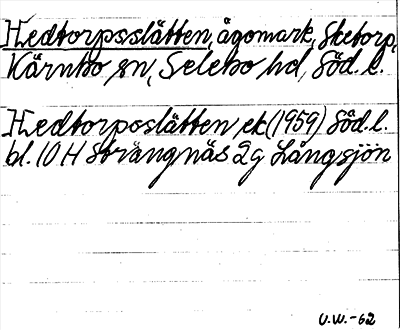 Hedtorpsslätten, ägomark, Sketorp,
Kärnbo sn, Selebo hd, Söd. l.
Hedtorpsslätten, ek (1959) Söd. l.
bl. 10 H Strängnäs 2g Långsjön
U.W.-62